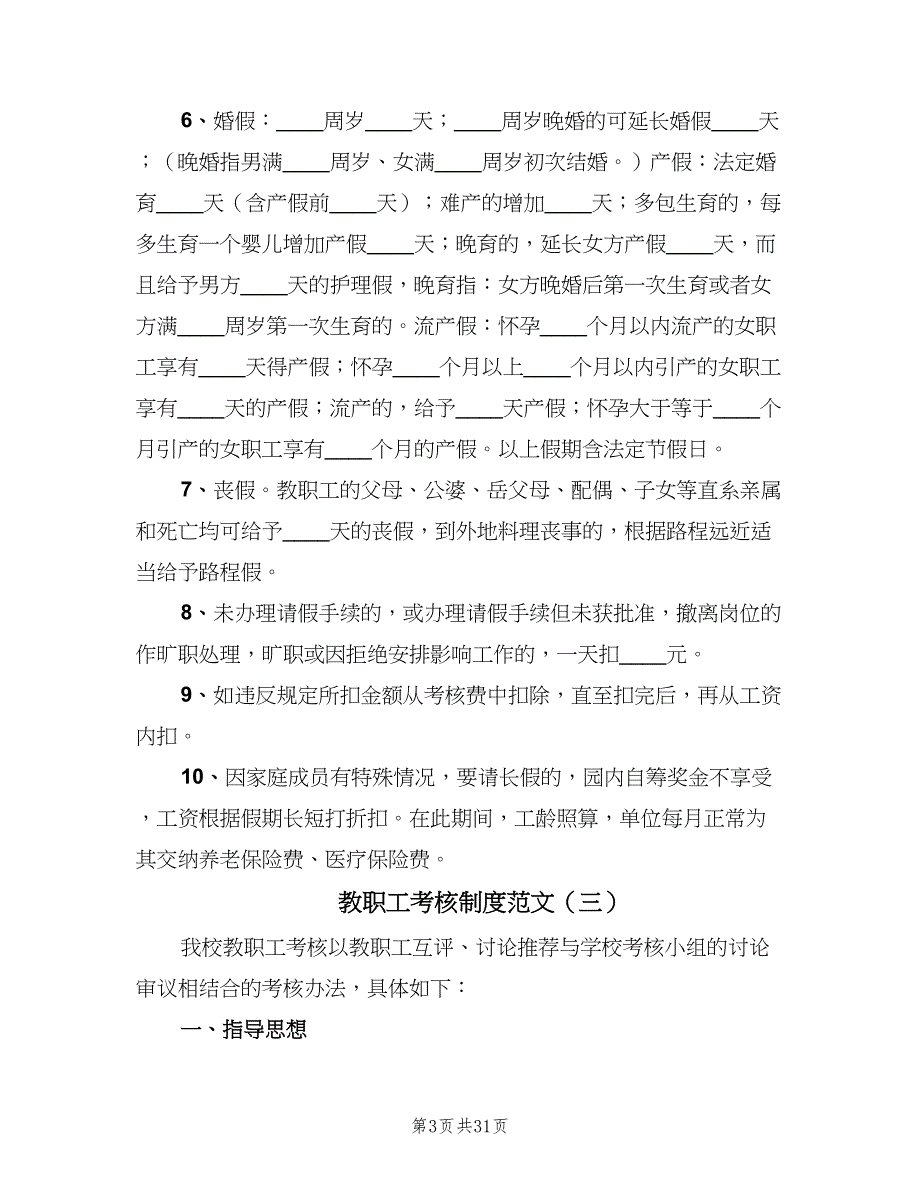 6、婚假：____周岁____天；____周岁晚婚的可延长婚假____天
；（晚婚指男满____周岁、女满____周岁初次结婚。）产假：法定婚
育____天（含产假前____天）；难产的增加____天；多包生育的，每
多生育一个婴儿增加产假____天；晚育的，延长女方产假____天，而
且给予男方____天的护理假，晚育指：女方晚婚后第一次生育或者女
方满____周岁第一次生育的。流产假：怀孕____个月以内流产的女职
工享有____天得产假；怀孕____个月以上____个月以内引产的女职工
享有____天的产假；流产的，给予____天产假；怀孕大于等于____个
月引产的女职工享有____个月的产假。以上假期含法定节假日。
7、丧假。教职工的父母、公婆、岳父母、配偶、子女等直系亲属
和死亡均可给予____天的丧假，到外地料理丧事的，根据路程远近适
当给予路程假。
8、未办理请假手续的，或办理请假手续但未获批准，撤离岗位的
作旷职处理，旷职或因拒绝安排影响工作的，一天扣____元。
9、如违反规定所扣金额从考核费中扣除，直至扣完后，再从工资
内扣。
10、因家庭成员有特殊情况，要请长假的，园内自筹奖金不享受
，工资根据假期长短打折扣。在此期间，工龄照算，单位每月正常为
其交纳养老保险费、医疗保险费。
教职工考核制度范文（三）
我校教职工考核以教职工互评、讨论推荐与学校考核小组的讨论
审议相结合的考核办法，具体如下：
一、指导思想
第3页共31页